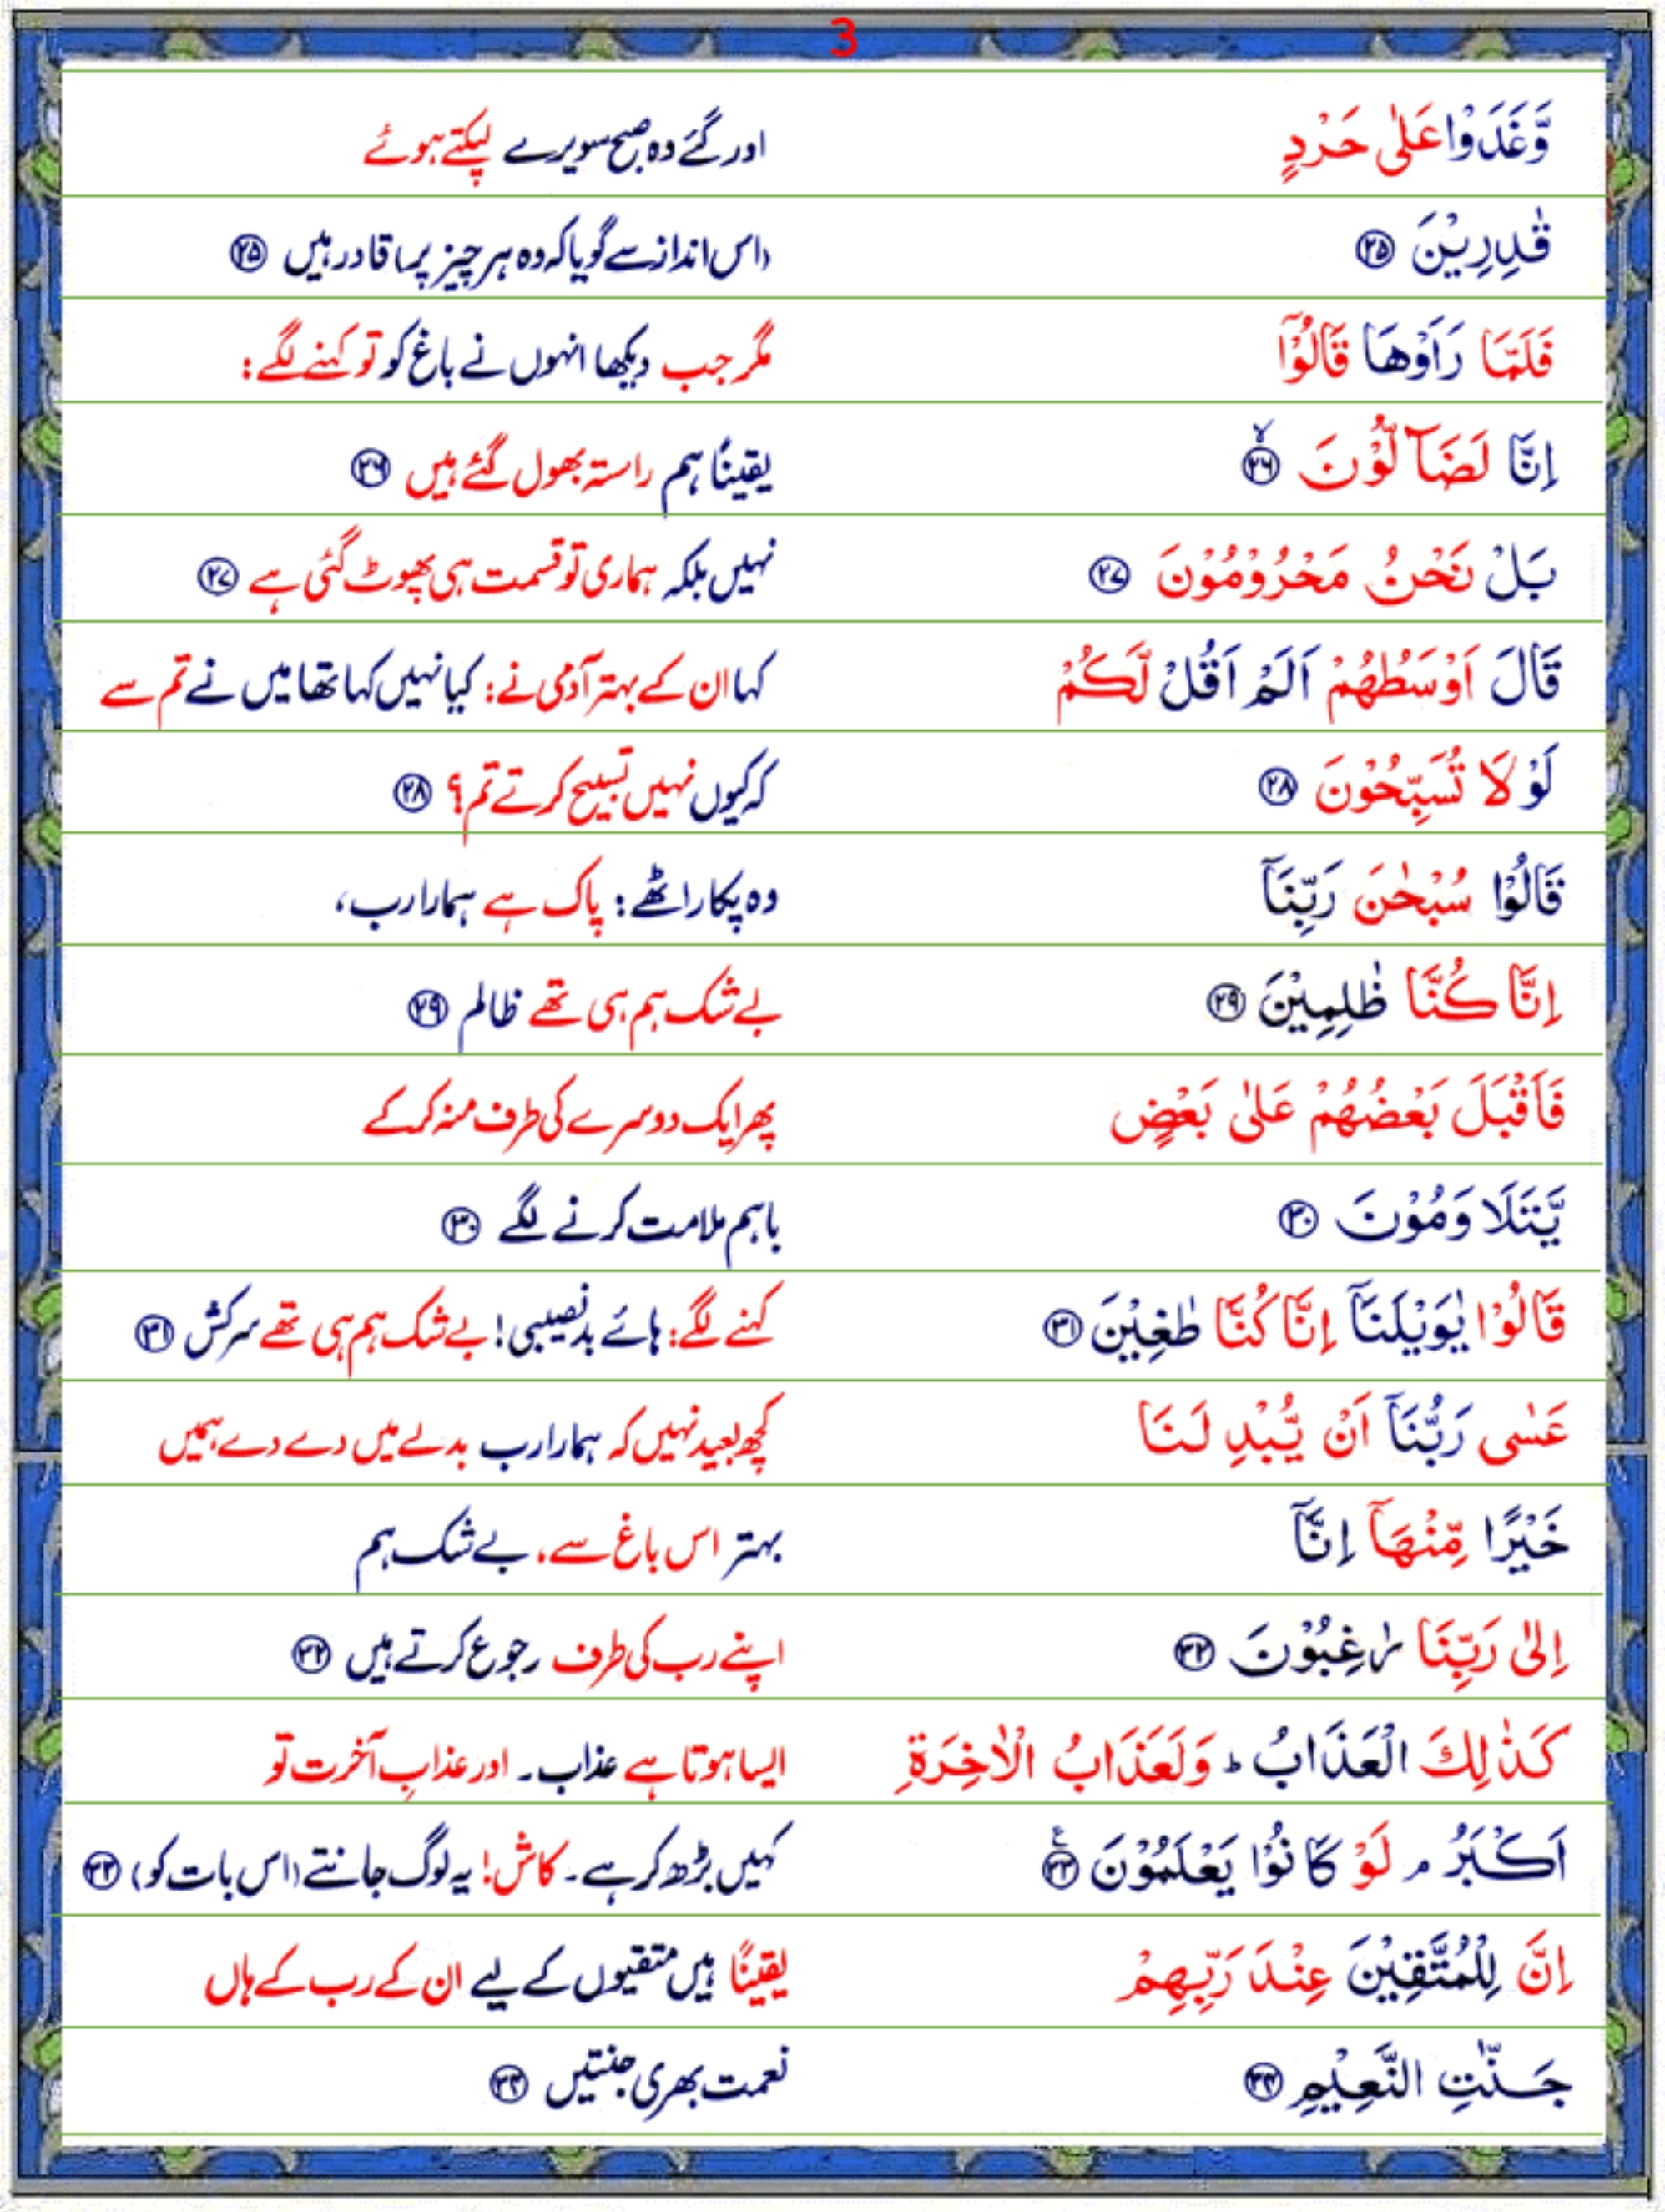 3
وَّغَدَوْا عَلٰى حَرْدٍ اور گئے وہ صبح سویرے لپکتے ہوئے
قٰدِرِيْنَ ۝۲۵ (اس انداز سے گویا کہ وہ ہر چیز پر) قادر ہیں ۝۲۵
فَلَمَّا رَاَوْهَا قَالُوْٓا مگر جب دیکھا انہوں نے باغ کو تو کہنے لگے:
اِنَّا لَضَآلُّوْنَ ۝۲۶ یقیناً ہم راستہ بھول گئے ہیں ۝۲۶
بَلْ نَحْنُ مَحْرُوْمُوْنَ ۝۲۷ نہیں بلکہ ہماری تو قسمت ہی پھوٹ گئی ہے ۝۲۷
قَالَ اَوْسَطُهُمْ اَلَمْ اَقُلْ لَّكُمْ کہا ان کے بہتر آدمی نے: کیا نہیں کہا تھا میں نے تم سے
لَوْلَا تُسَبِّحُوْنَ ۝۲۸ کہ کیوں نہیں تسبیح کرتے تم؟ ۝۲۸
قَالُوْا سُبْحٰنَ رَبِّنَآ وہ پکار اٹھے: پاک ہے ہمارا رب،
اِنَّا كُنَّا ظٰلِمِيْنَ ۝۲۹ بے شک ہم ہی تھے ظالم ۝۲۹
فَاَقْبَلَ بَعْضُهُمْ عَلٰى بَعْضٍ پھر ایک دوسرے کی طرف منہ کر کے
يَّتَلَاوَمُوْنَ ۝۳۰ باہم ملامت کرنے لگے ۝۳۰
قَالُوْا يٰوَيْلَنَآ اِنَّا كُنَّا طٰغِيْنَ ۝۳۱ کہنے لگے: ہائے بدنصیبی! بے شک ہم ہی تھے سرکش ۝۳۱
عَسٰى رَبُّنَآ اَنْ يُّبْدِلَنَا کچھ بعید نہیں کہ ہمارا رب بدلے میں دے دے ہمیں
خَيْرًا مِّنْهَآ اِنَّآ بہتر اس باغ سے، بے شک ہم
اِلٰى رَبِّنَا رٰغِبُوْنَ ۝۳۲ اپنے رب کی طرف رجوع کرتے ہیں ۝۳۲
كَذٰلِكَ الْعَذَابُ ؕ وَلَعَذَابُ الْاٰخِرَةِ ایسا ہوتا ہے عذاب۔ اور عذابِ آخرت تو
اَكْبَرُ ۘ لَوْ كَانُوْا يَعْلَمُوْنَ ۝۳۳ کہیں بڑھ کر ہے۔ کاش! یہ لوگ جانتے (اس بات کو) ۝۳۳
اِنَّ لِلْمُتَّقِيْنَ عِنْدَ رَبِّهِمْ یقیناً ہیں متقیوں کے لیے ان کے رب کے ہاں
جَنّٰتِ النَّعِيْمِ ۝۳۴ نعمت بھری جنتیں ۝۳۴